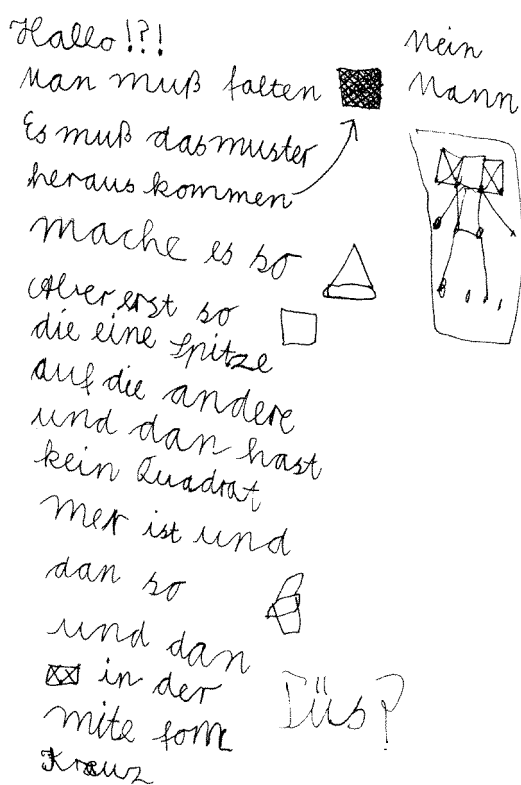 Hallo!?!
Man muß falten
Es muß dasmuster
heraus kommen
mache es so
Aber erst so
die eine Spitze
auf die andere
und dan hast
kein Quadrat
mer ist und
dan so
und dan
in der
mite fom
Kreuz
Düs?
Mein
Mann